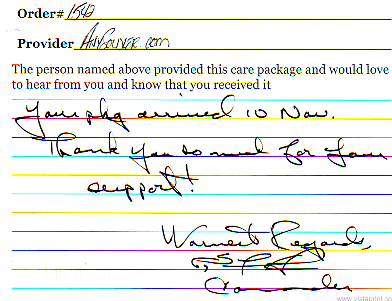 Order# 1542
Provider AnySoldier.com
The person named above provided this care package and would love
to hear from you and know that you received it
Your pkg arrived 10 Nov.
Thank you so much for your
support!
Warmest Regards,
Commander
www.vistaprint.com